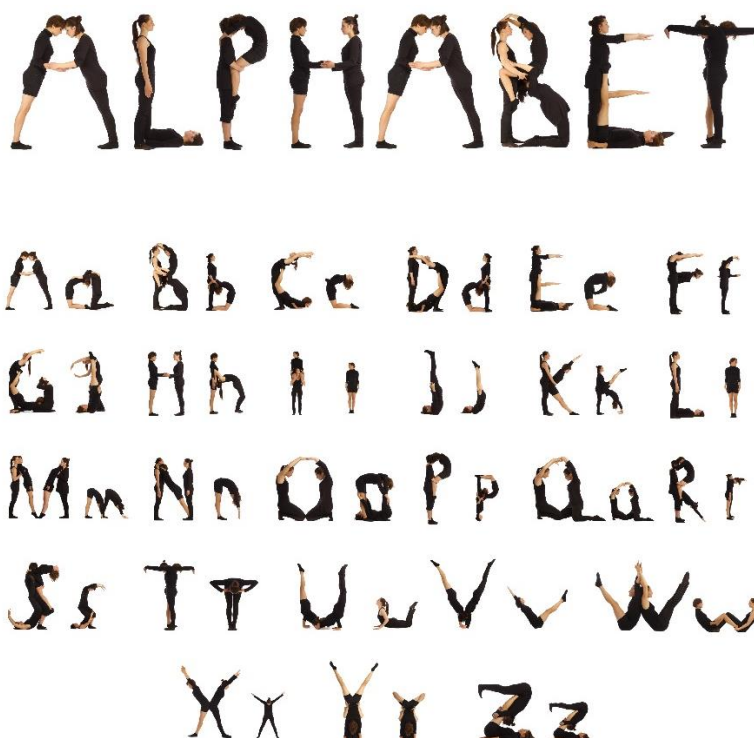 ALPHABET
Aa Bb Cc Dd Ee Ff
Gg Hh Ii Jj Kk Ll
Mm Nn Oo Pp Qq Rr
Ss Tt Uu Vv Ww
Xx Yy Zz